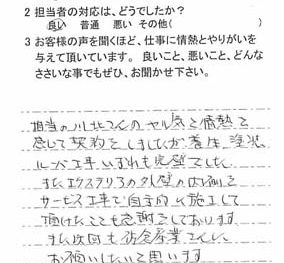 2 担当者の対応は、どうでしたか?
良い 普通 悪い その他( )
3 お客様の声を聞くほど、仕事に情熱とやりがいを
与えて頂いています。 良いこと、悪いこと、どんな
ささいな事でもぜひ、お聞かせ下さい。
担当の川北さんのヤル気と情熱を
感じて契約をしましたが養生、塗装、
ルーフ工事いずれも完璧でした
またエクステリアの外壁の内側を
サービス工事で自主的に施工して
頂けたことも感謝しております
また次回も 産業さんに
お願いしたいと思います